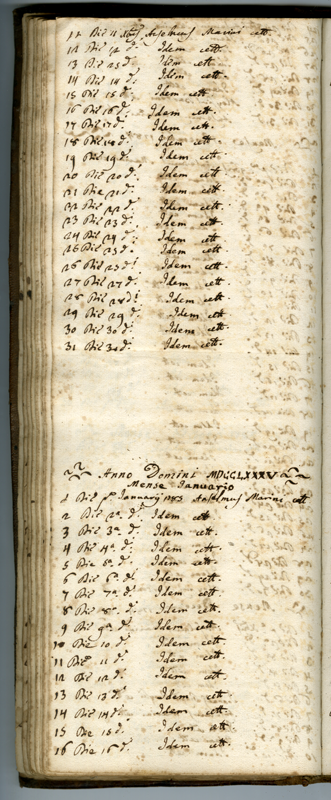 11 Die 11 Xbris Anselmus Marini ett.
12 Die 12 d.º Idem ett.
13 Die 13 d.º Idem ett.
14 Die 14 d.º Idem ett.
15 Die 15 d.º Idem ett.
16 Die 16 d.º Idem ett.
17 Die 17 d.º Idem ett.
18 Die 18 d.º Idem ett.
19 Die 19 d.º Idem ett.
20 Die 20 d.º Idem ett.
21 Die 21 d.º Idem ett.
22 Die 22 d.º Idem ett.
23 Die 23 d.º Idem ett.
24 Die 24 d.º Idem ett.
25 Die 25 d.º Idem ett.
26 Die 25 d.º Idem ett.
27 Die 27 d.º Idem ett.
28 Die 28 d.º Idem ett.
29 Die 29 d.º Idem ett.
30 Die 30 d.º Idem ett.
31 Die 30 d.º Idem ett.
Anno Domini MDCCLXXXV
Mense Ianuario
1 Die pª Ianuarij 1785 Anselmus Marini ett
2 Die 2ª d.º Idem ett
3 Die 3ª d.º Idem ett.
4 Die 4ª d.º Idem ett.
5 Die 5ª d.º Idem ett.
6 Die 6ª d.º Idem ett.
7 Die 7ª d.º Idem ett.
8 Die 8ª d.º Idem ett.
9 Die 9ª d.º Idem ett.
10 Die 10 d.º Idem ett.
11 Die 11 d.º Idem ett.
12 Die 12 d.º Idem ett.
13 Die 13 d.º Idem ett.
14 Die 14 d.º Idem ett.
15 Die 15 d.º Idem ett.
16 Die 16 d.º Idem ett.